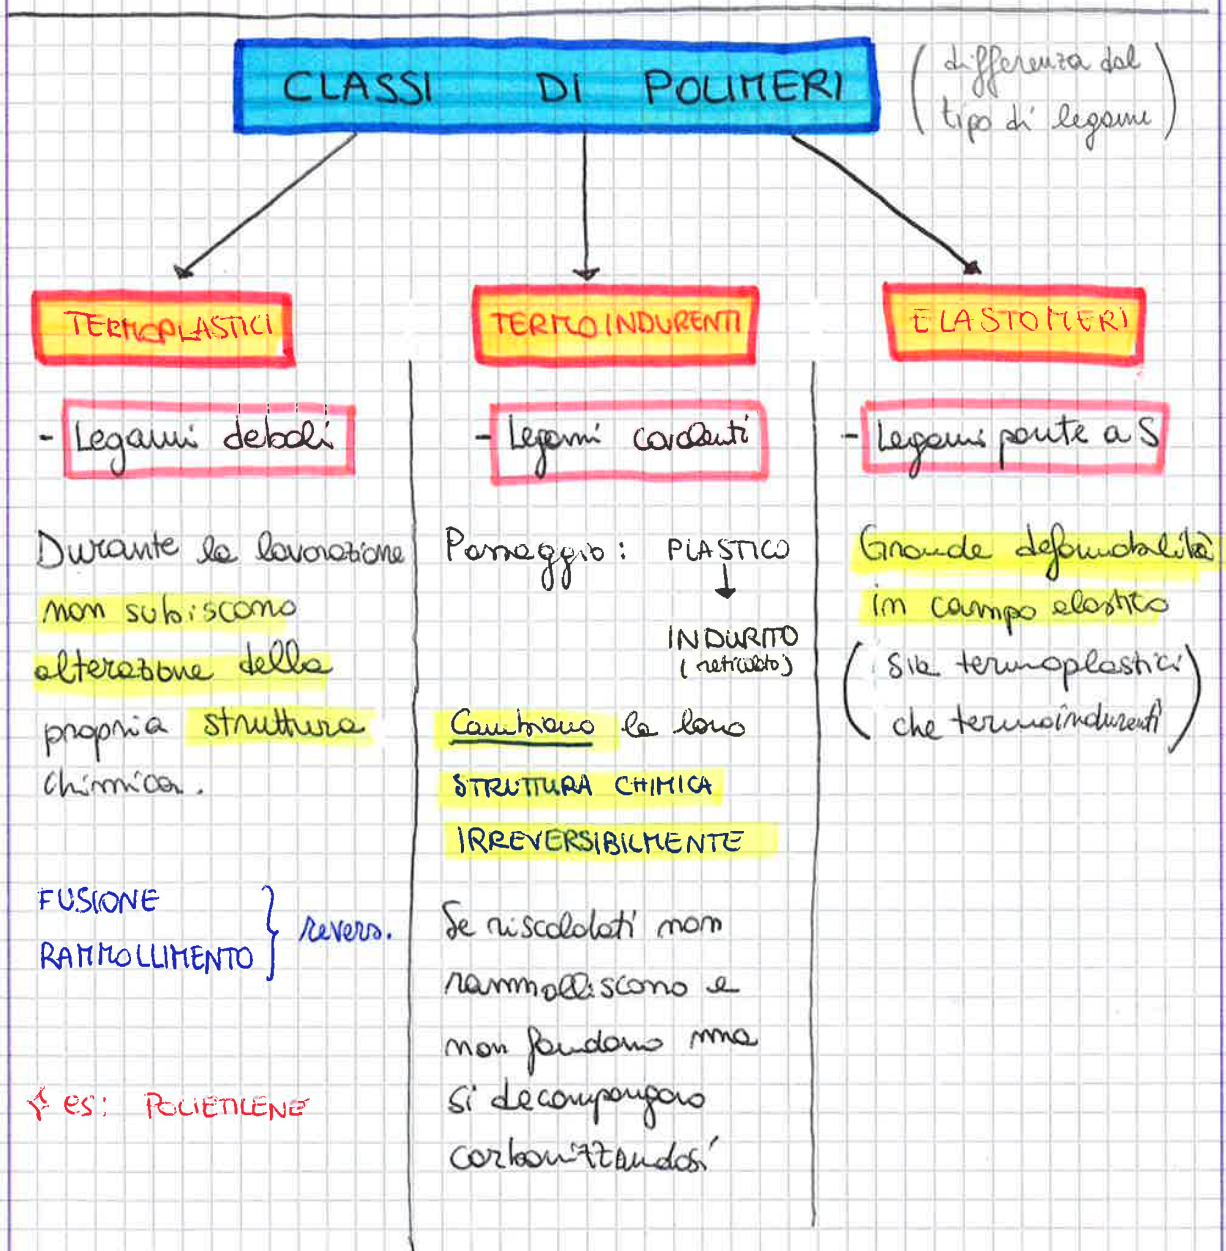 CLASSI DI POLIMERI
(differenza dal
tipo di legame)
TERMOPLASTICI
- Legami deboli
Durante la lavorazione
non subiscono
alterazione della
propria struttura
chimica.
FUSIONE
RAMMOLLIMENTO } revers.
es: POLIETILENE
TERMOINDURENTI
- Legami covalenti
Passaggio: PLASTICO
↓
INDURITO
(reticolato)
Cambiano la loro
STRUTTURA CHIMICA
IRREVERSIBILMENTE
Se riscaldati non
rammolliscono e
non fondono ma
si decompongono
carbonizzandosi
ELASTOMERI
- Legami ponte a S
Grande deformabilità
in campo elastico
(sia termoplastici
che termoindurenti)